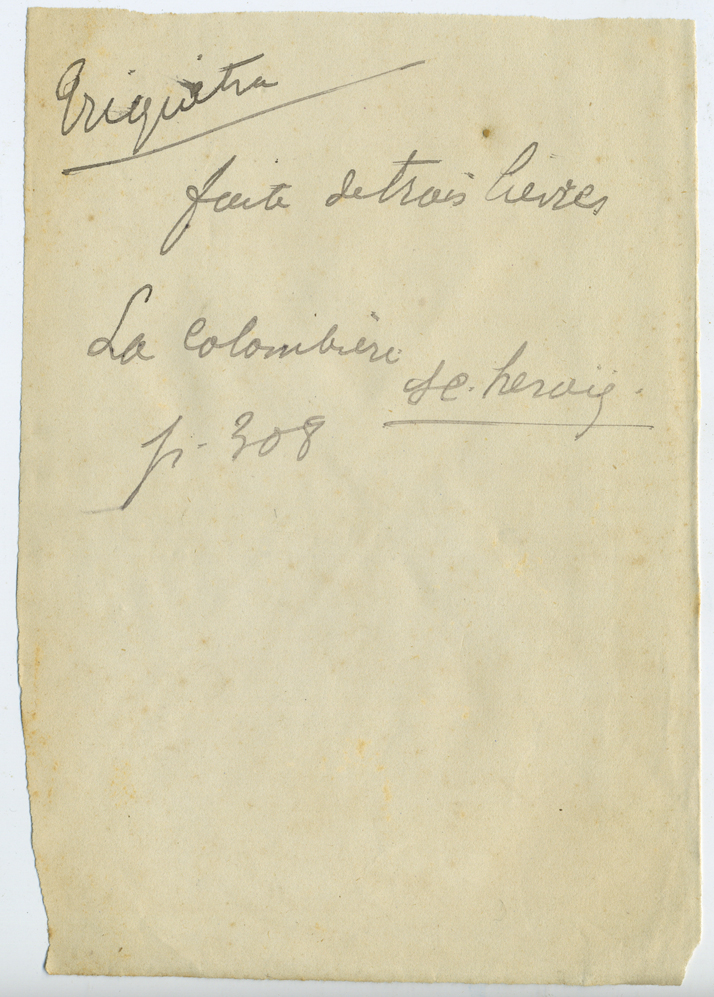 Triquetra
faite de trois lièvres
La Colombière
sc. heroiq.
p. 308